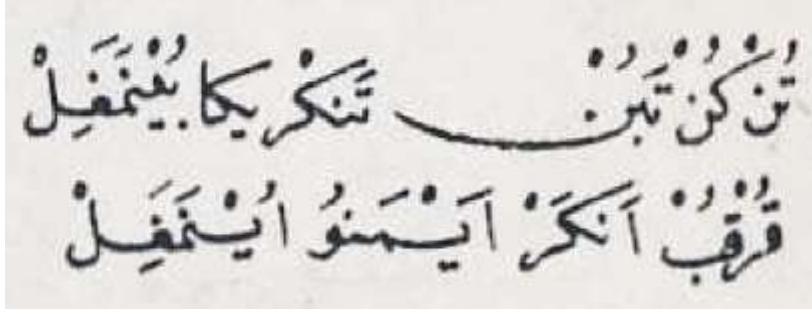 تُنْ كُنْ تَبُنْ تَنكْريكا بُيْنَمَغِلْ
قُرْقُبْ اَنكَرْ اَيْمَنوُ اُيْنَمَغِلْ